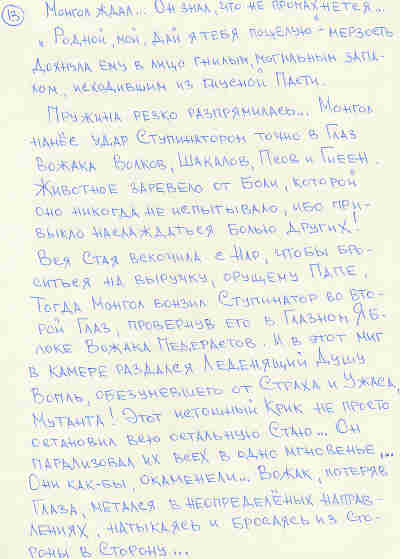 13
Монгол ждал... Он знал, что не промахнется...
„Родной, мой, дай я тебя поцелую" – мерзость
дохнула ему в лицо гнилым, могильным запа-
хом, исходившим из гнусной Пасти.
Пружина резко разпрямилась... Монгол
нанёс удар Ступинатором точно в Глаз
Вожака Волков, Шакалов, Псов и Гиеен.
Животное заревело от Боли, которой
оно никогда не испытывало, ибо при-
выкло наслаждаться болью других!
Вся Стая вскочила с Нар, чтобы бро-
ситься на выручку, орущему Папе.
Тогда Монгол вонзил Ступинатор во вто-
рой Глаз, провернув его в Глазном Яб-
локе Вожака Педерастов. И в этот миг
в камере раздался Леденящий Душу
Вопль, обезумевшего от Страха и Ужаса,
Мутанта! Этот истошный Крик не просто
остановил всю остальную Стаю... Он
парализовал их всех в одно мгновенье...
Они как-бы, окаменели... Вожак, потеряв
Глаза, метался в неопределёных направ-
лениях, натыкаясь и бросаясь из сто-
роны в сторону...